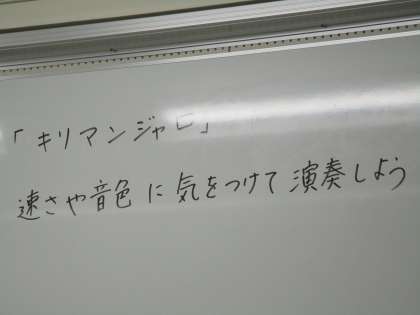 「キリマンジャロ」
速さや音色に気をつけて演奏しよう